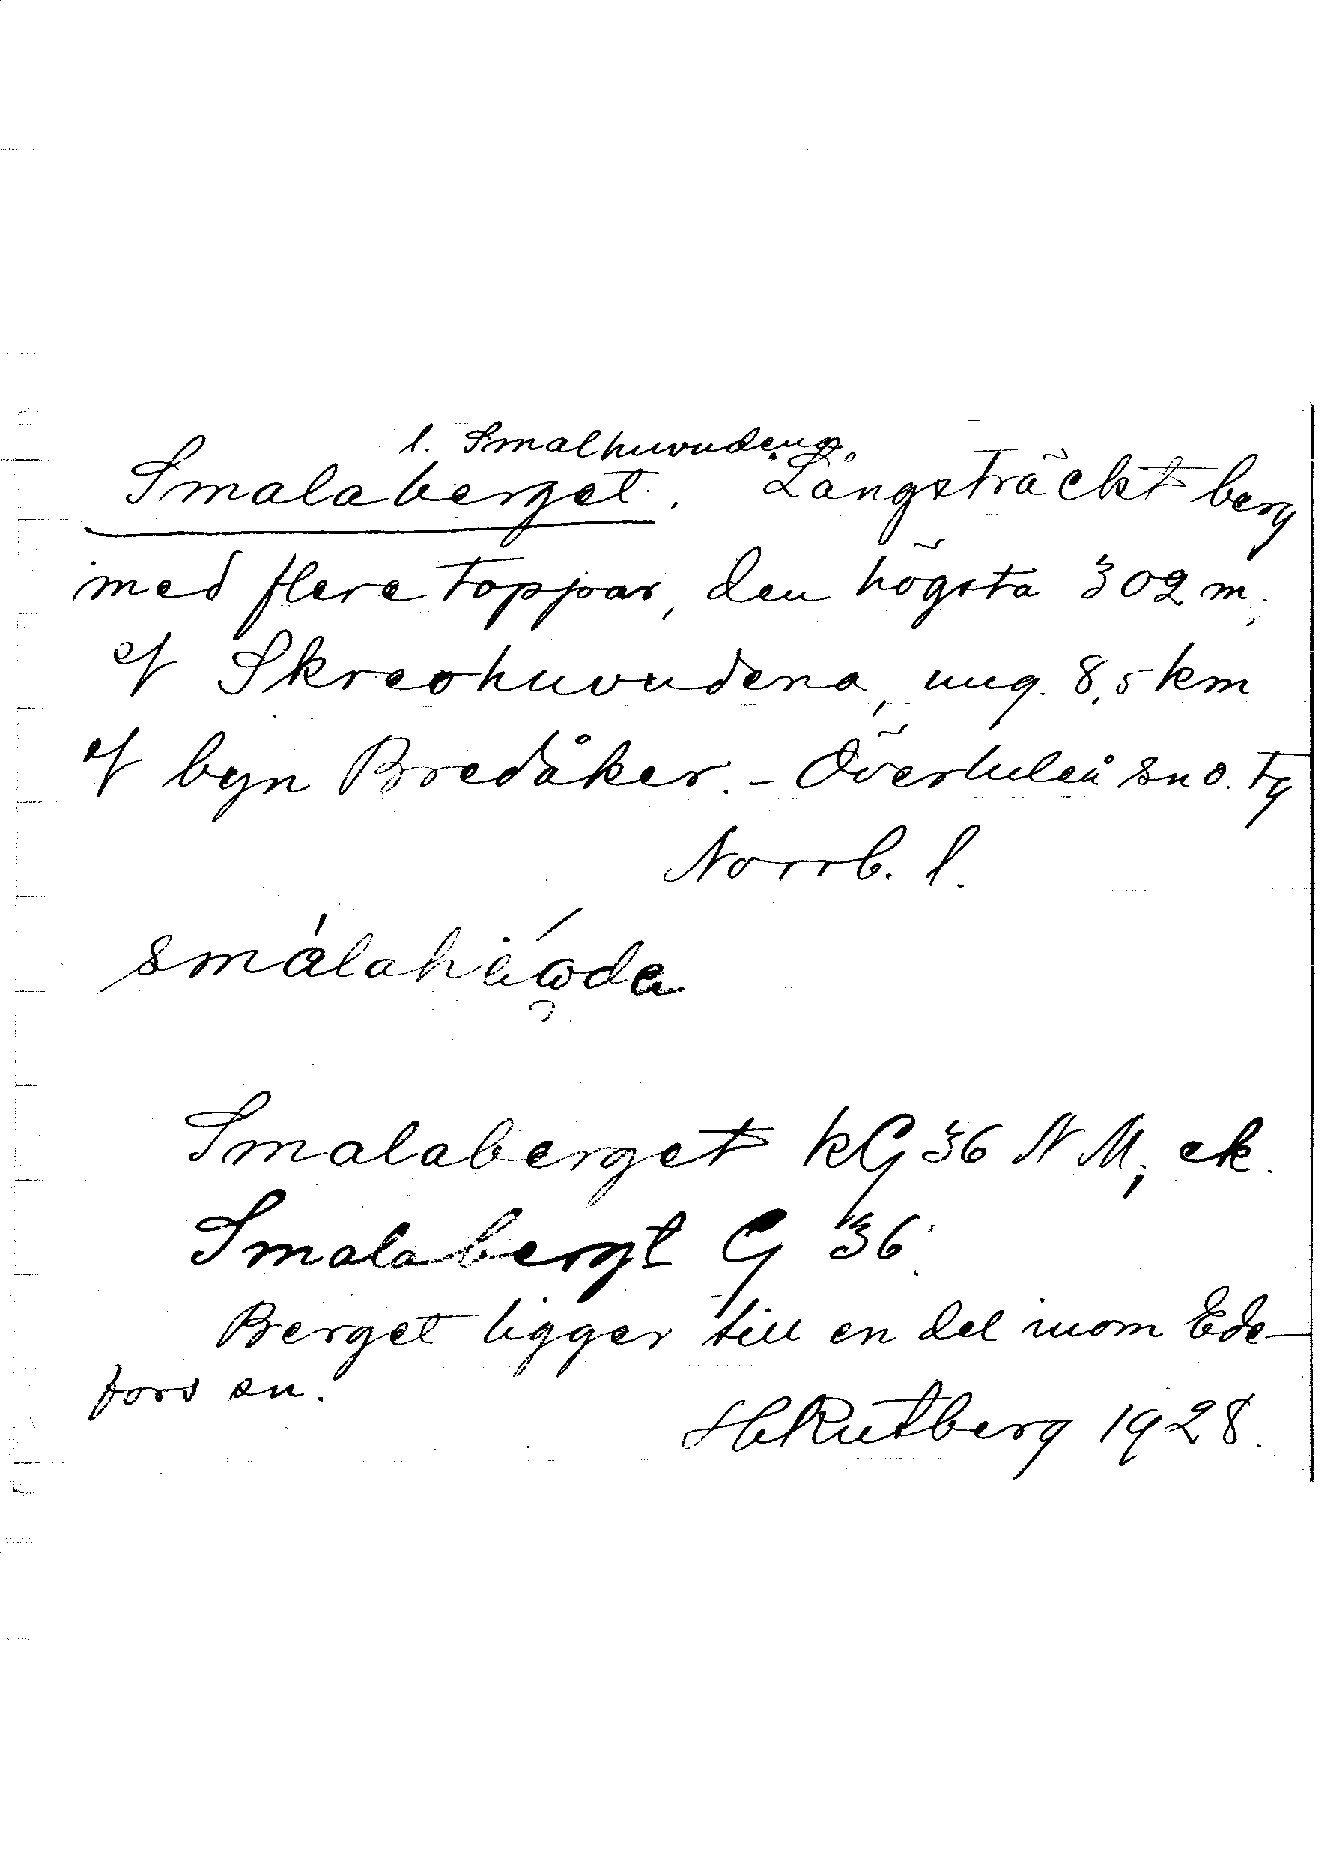 l. Smalhuvudena
Smalaberget. Långsträckt berg
med flere toppar, den högsta 302 m,
Skreohuvudena, ung. 8,5 km
byn Bredåker. - Överluleå sn o. tg
Norrb. l.
Smalaberget kG 36 N M, ek.
Smalabergt G 36.
Berget ligger till en del inom Ede-
fors sn.
HRutberg 1928.